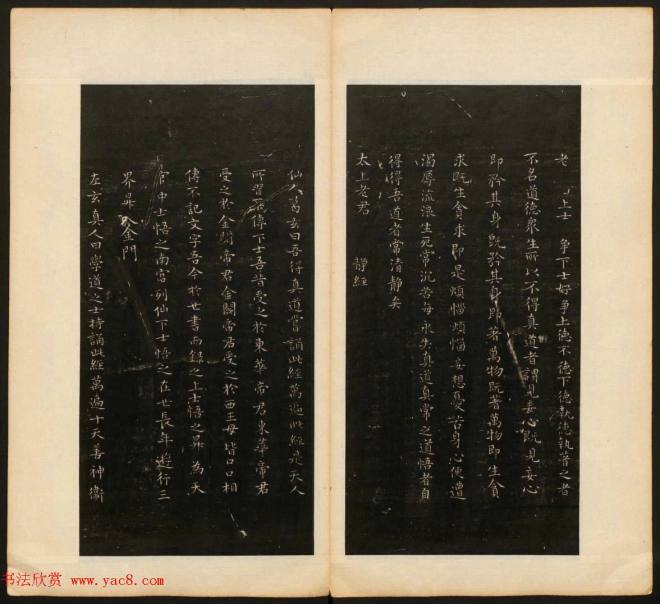 老 上士 争下士好争上德不德下德執德執著之者
不名道德衆生所以不得真道者謂有妄心既見妄心
即矜其身既矜其身即著萬物既著萬物即生貪
求既生貪求即是煩惱煩惱妄想憂苦身心便遭
濁辱流浪生死常沉苦海永失真道真常之道悟者自
得得吾道者常清静矣
太上老君 静經
仙人葛玄曰吾得真道嘗誦此經萬遍此經是天人
所習不傳下士吾昔受之於東華帝君東華帝君
受之於金闕帝君金闕帝君受之於西王母皆口口相
傳不記文字吾今於世書而録之上士悟之昇為天
官中士悟之南宫列仙下士悟之在世長年遊行三
界昇入金門
左玄真人曰學道之士持誦此經萬遍十天善神衛
书法欣赏 www.yac8.com